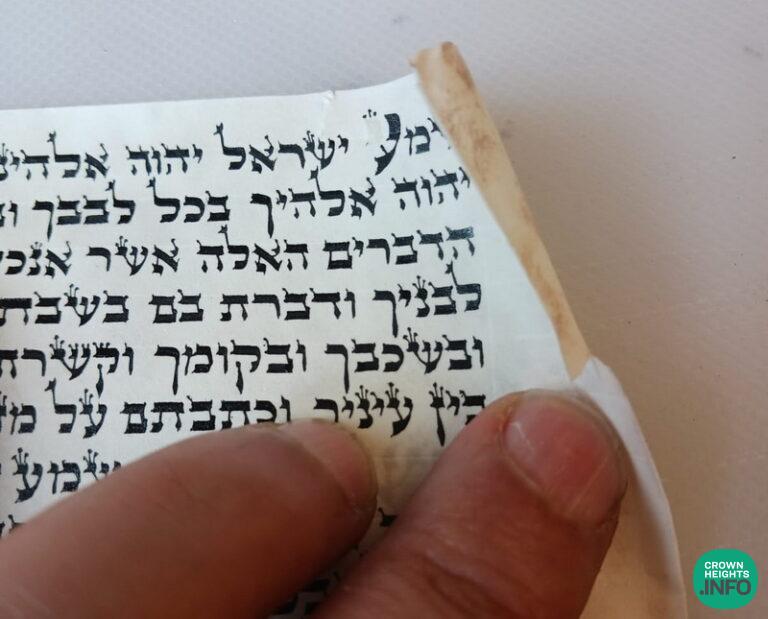 ישראל יהוה
יהוה אלהיך בכל לבבך
הדברים האלה אשר
לבניך ודברת בם בשבת
ובשכבך ובקומך וקשרת
בין עיניך וכתבתם על
שמע
CROWN
HEIGHTS
.INFO